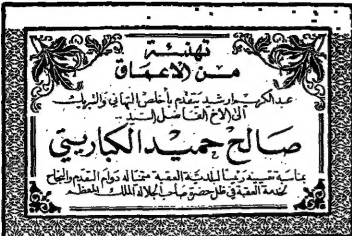 تهنئة
من الاعماق
عبدالكريم ارشيد يتقدم بأخلص التهاني والتبريك
الى الاخ الفاضل السيد
صالح حميد الكباريتي
بمناسبة تعيينه رئيسا لبلدية العقبة متمنيا له دوام التقدم والنجاح
لخدمة العقبة في ظل حضرة صاحب الجلالة الملك المعظم